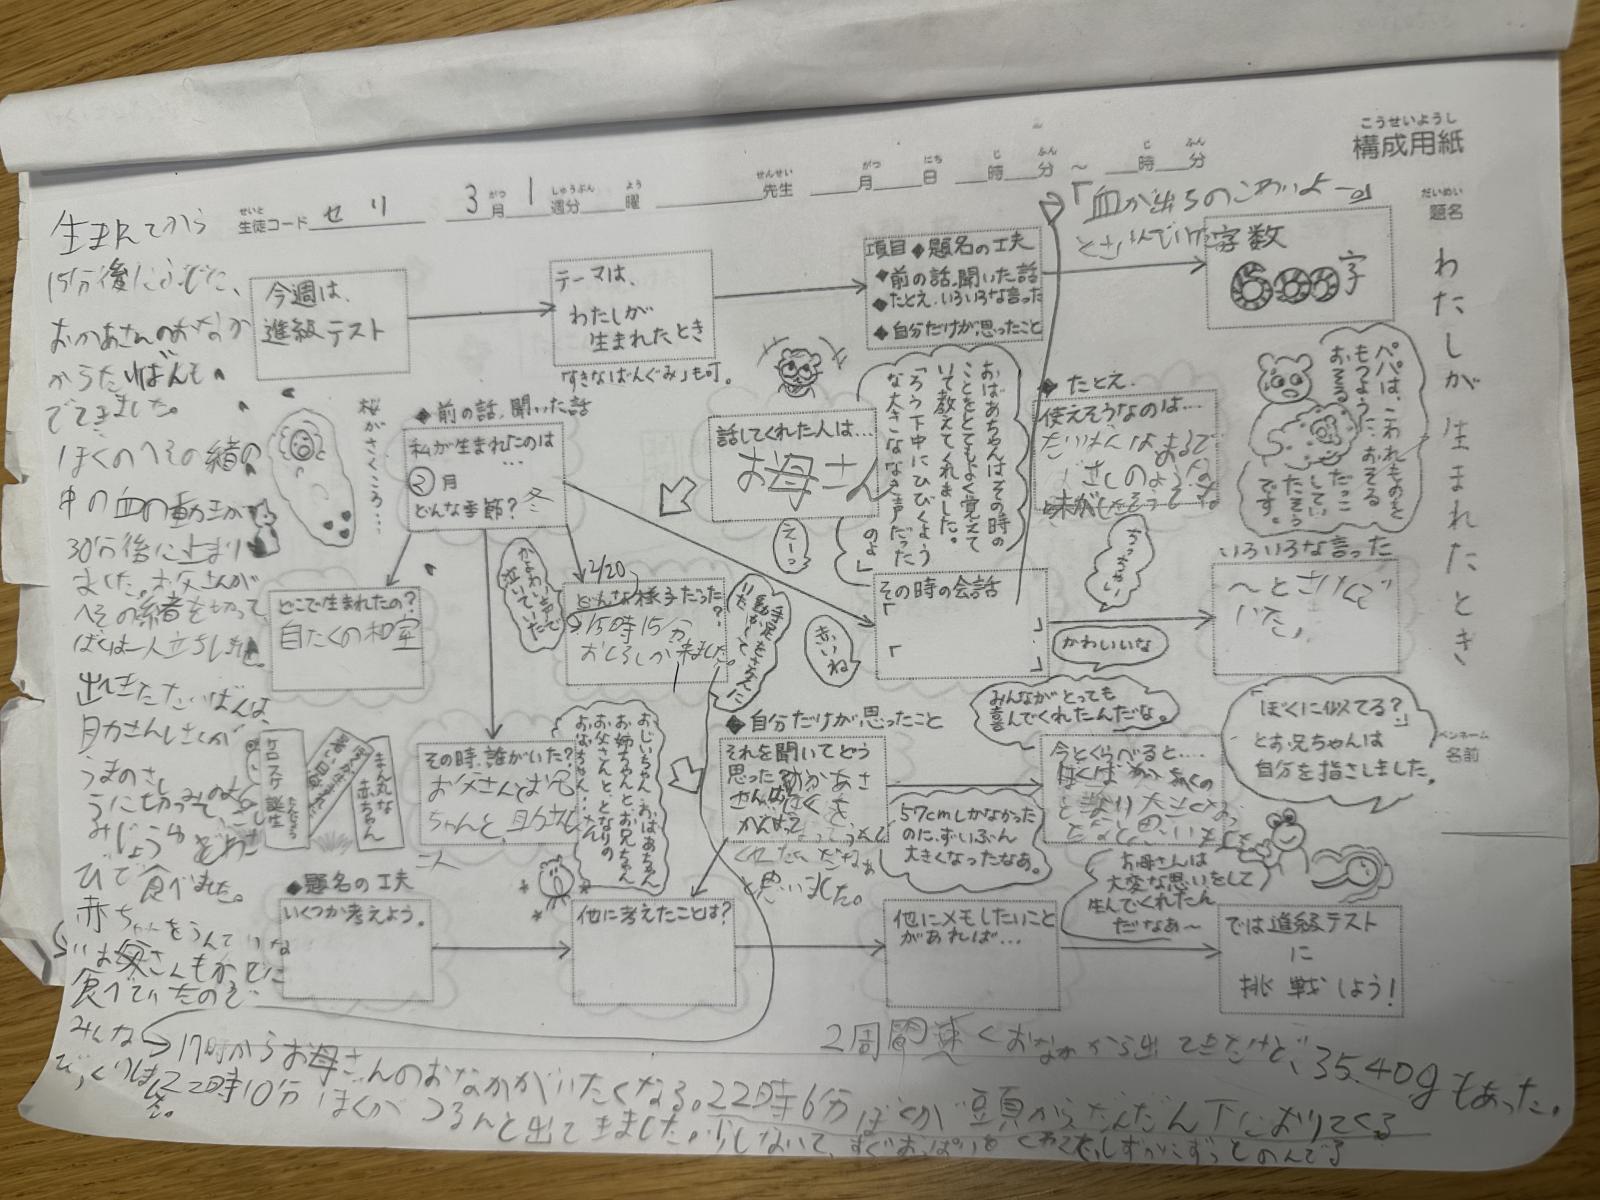 こうせいようし
構成用紙
だいめい
題名
わたしが生まれたとき
ペンネーム
名前
せいと
生徒コード せり
3月1週分 曜
がつ しゅうぶん よう
せんせい
先生
がつ にち じ ふん じ ふん
月 日 時 分 ～ 時 分
今週は、
進級テスト
テーマは、
わたしが
生まれたとき
「すきなばんぐみ」も可。
項目◆題名の工夫
◆前の話、聞いた話
◆たとえ、いろいろな言った
◆自分だけが思ったこと
「血が出るのこわいよー。」
とさけんでいた
字数
600字
◆前の話、聞いた話
私が生まれたのは
…
②月
どんな季節？冬
桜がさくころ…
話してくれた人は…
お母さん
えーっ
おばあちゃんはその時の
ことをとてもよく覚えて
いて教えてくれました。
「ろう下中にひびくよう
な大きななき声だった
のよ」
◆たとえ
使えそうなのは…
たいばんはまるで
パパは、こわれものを
もつように、おそる
おそるだっこ
してい
たそう
です。
いろいろな言った
～とさけんで
いた。
どこで生まれたの？
自たくの和室
かわいい声で
泣いていた
2/20
どんな様子だった？
15時15分
おしるしが来ました。
手足をさかんに
動かして
いた
赤いね
その時の会話
「
」
「
」
ちっちゃい
かわいいな
みんながとっても
喜んでくれたんだな。
「ぼくに似てる？」
とお兄ちゃんは
自分を指さしました。
その時、誰がいた？
お父さんとお兄
ちゃんと、助さん
二人
おじいちゃん、おばあちゃん
お姉ちゃんとお兄ちゃん
お父さんと、となりの
おばちゃん…
◆自分だけが思ったこと
それを聞いてどう
思った？
がんばって
くれたんだなあ
と思いました。
57cmしかなかった
のに、ずいぶん
大きくなったなあ。
今とくらべると…
お母さんは
大変な思いをして
生んでくれたん
だなあ～
まん丸な
赤ちゃん
暑い日
ケロスケ誕生
たんじょう
◆題名の工夫
いくつか考えよう。
他に考えたことは？
他にメモしたいこと
があれば…
では進級テスト
に
挑戦しよう！
生まれてから
15分後に
おかあさんのおなか
からたいばんも
でてきました。
ぼくのへその緒の
中の血の動きが
30分後に止まり
ました。お父さんが
へその緒を切って、
ぼくは一人立ちしました。
出てきたたいばんは、
助さんしさんが
うまのさし
みじょうゆ
びで食べました。
赤ちゃんをうんで
お母さんもかでに
食べていたので
みんな
びっくり
17時からお母さんのおなかがいたくなる。22時6分ぼくが頭からだんだん下におりてくる
22時10分ぼくがつるんと出てきました。少しないて、すぐおっぱいをくわえて
2周間速くおなかから出てきたけど、35.40gもあった。